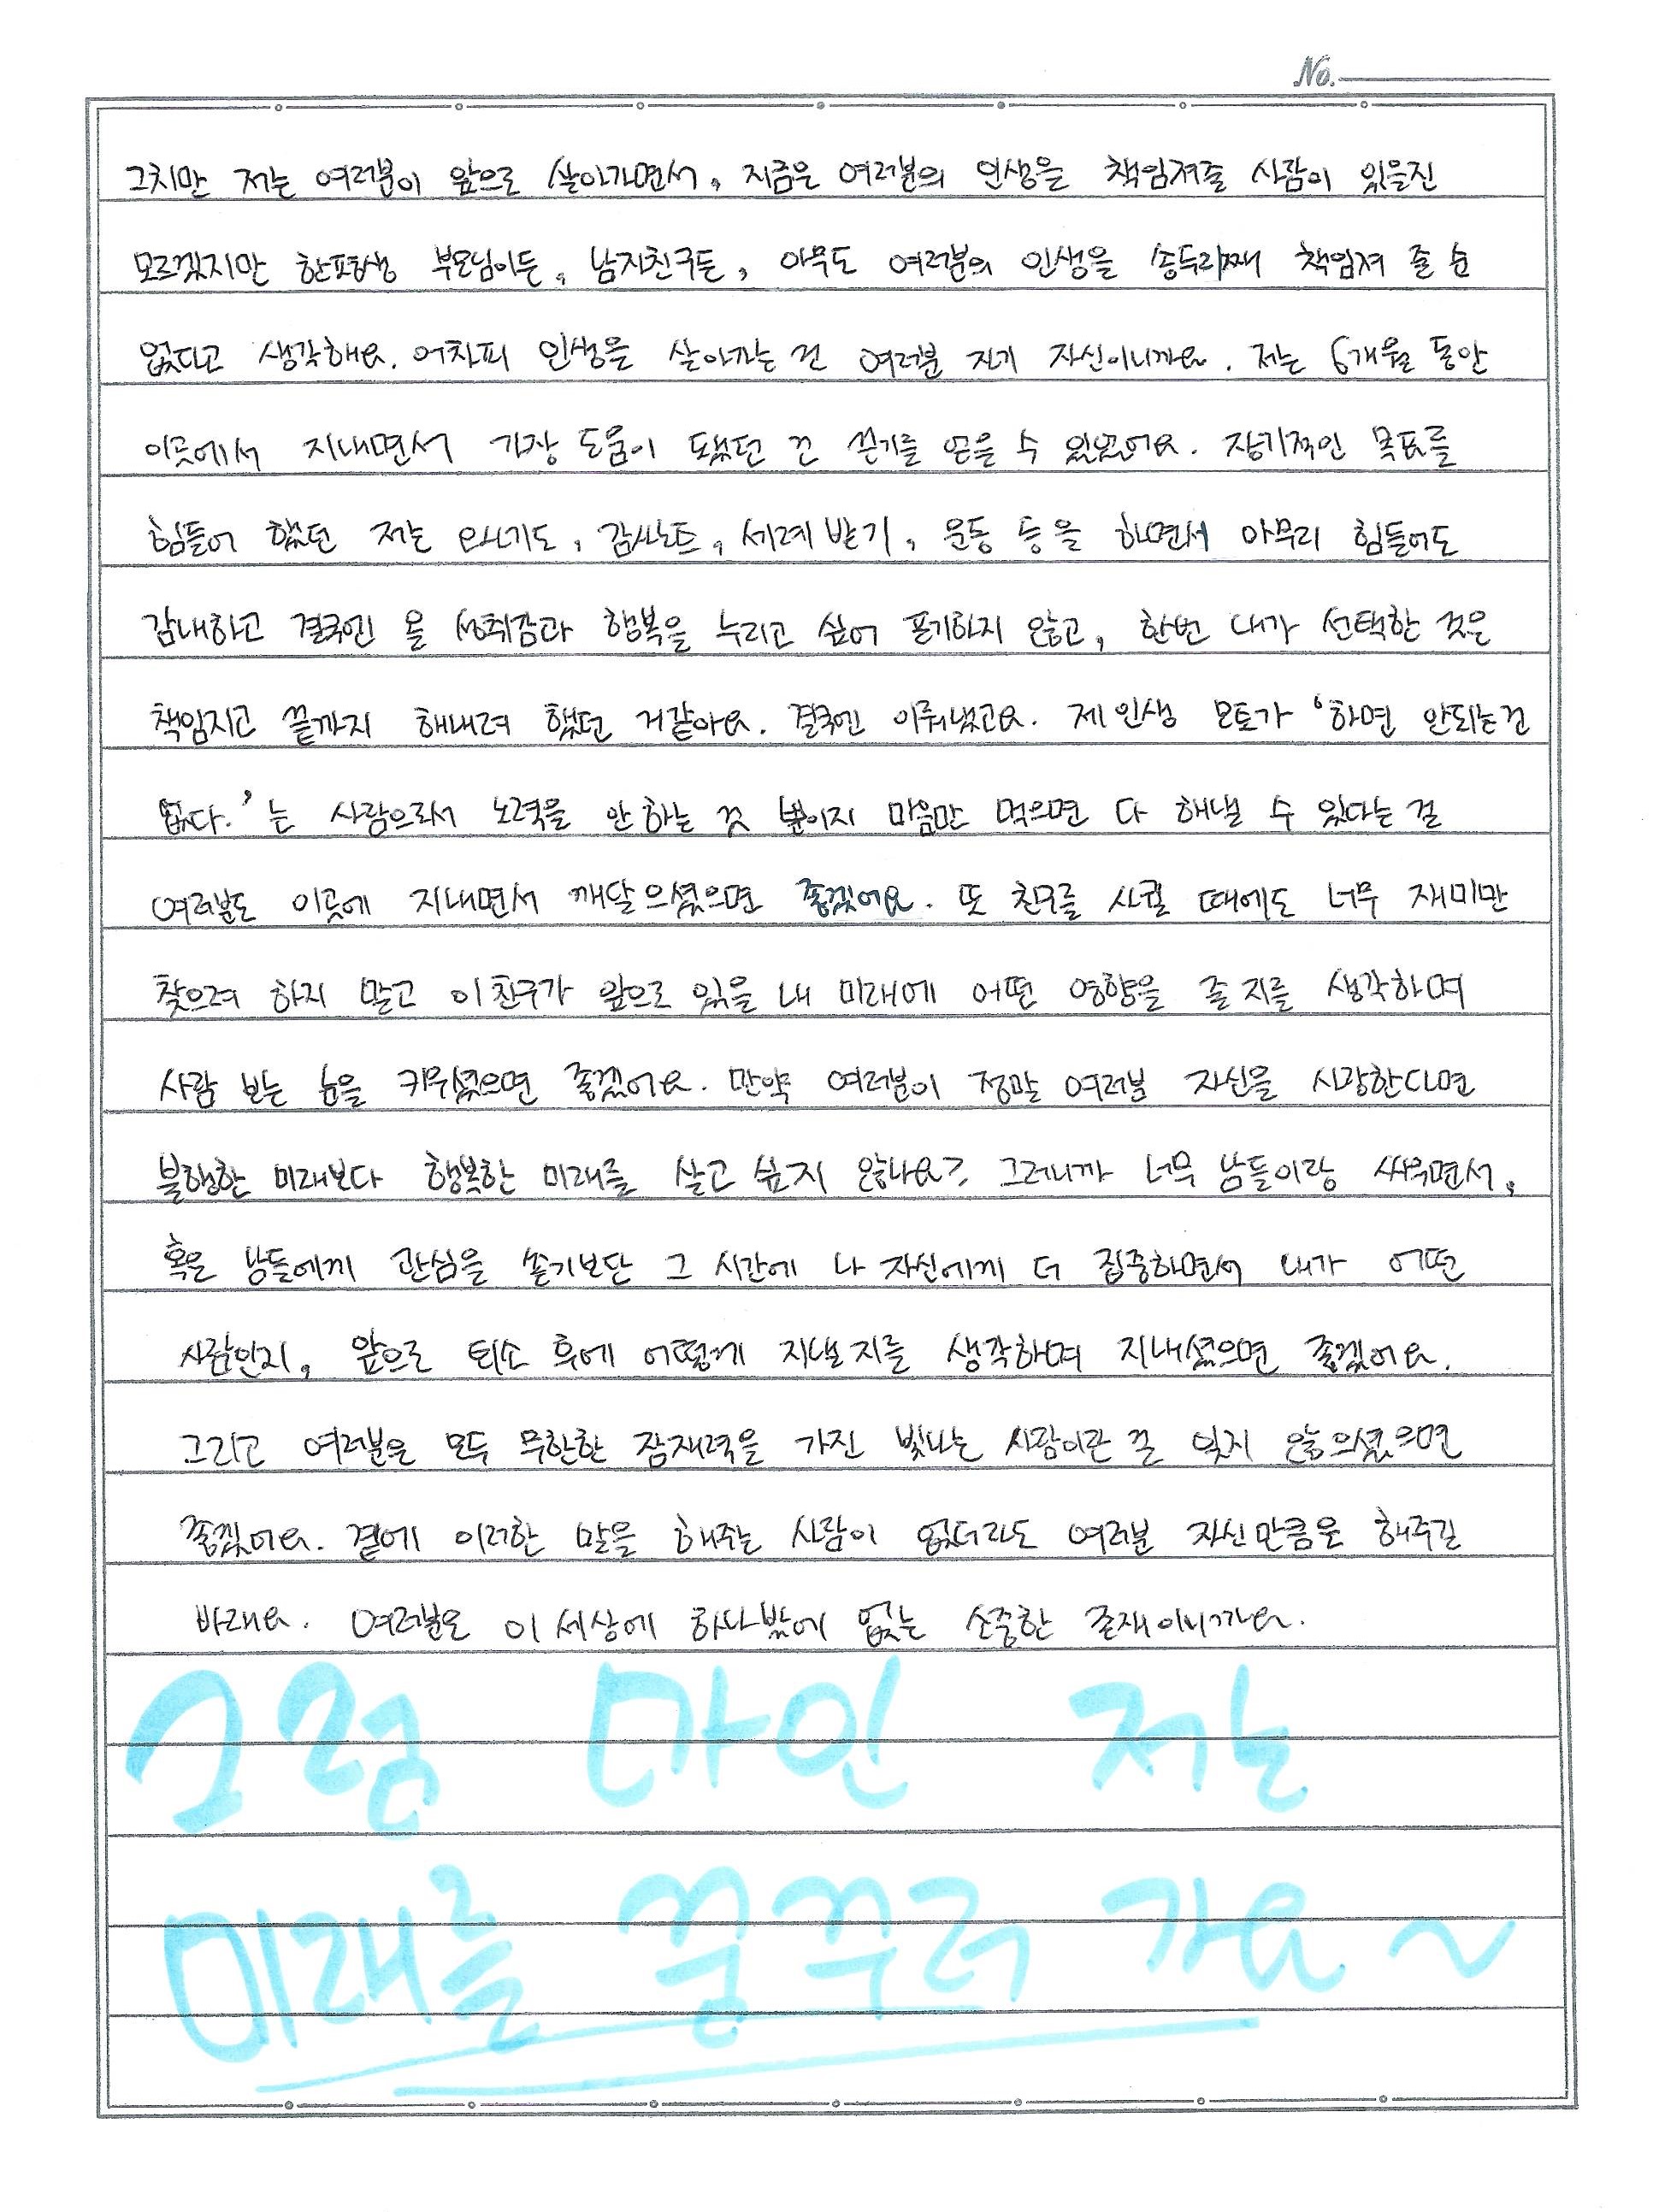 No.
그치만 저는 여러분이 앞으로 살아가면서, 지금은 여러분의 인생을 책임져줄 사람이 있을진
모르겠지만 한평생 부모님이든, 남자친구든, 아무도 여러분의 인생을 송두리째 책임져 줄 순
없다고 생각해요. 어차피 인생을 살아가는 건 여러분 자기 자신이니까요. 저는 6개월 동안
이곳에서 지내면서 가장 도움이 됐던 건 끈기를 얻을 수 있었어요. 장기적인 목표를
힘들어 했던 저는 9일기도, 감사노트, 세례받기, 운동 등을 하면서 아무리 힘들어도
감내하고 결국엔 올 성취감과 행복을 누리고 싶어 포기하지 않고, 한번 내가 선택한 것은
책임지고 끝까지 해내려 했던 거같아요. 결국엔 이뤄냈고요. 제 인생 모토가 '하면 안되는건
없다.'는 사람으로서 노력을 안 하는 것 뿐이지 마음만 먹으면 다 해낼 수 있다는 걸
여러분도 이곳에 지내면서 깨달으셨으면 좋겠어요. 또 친구를 사귈 때에도 너무 재미만
찾으려 하지 말고 이 친구가 앞으로 있을 내 미래에 어떤 영향을 줄 지를 생각하며
사람 보는 눈을 키우셨으면 좋겠어요. 만약 여러분이 정말 여러분 자신을 사랑한다면
불행한 미래보다 행복한 미래를 살고 싶지 않나요? 그러니까 너무 남들이랑 싸우면서,
혹은 남들에게 관심을 쏟기보단 그 시간에 나 자신에게 더 집중하면서 내가 어떤
사람인지, 앞으로 퇴소 후에 어떻게 지낼 지를 생각하며 지내셨으면 좋겠어요.
그리고 여러분은 모두 무한한 잠재력을 가진 빛나는 사람이란 걸 잊지 않으셨으면
좋겠어요. 곁에 이러한 말을 해주는 사람이 없더라도 여러분 자신만큼은 해주길
바래요. 여러분은 이 세상에 하나밖에 없는 소중한 존재이니까요.
그럼 마인 저는
미래를 꿈꾸러 가요~